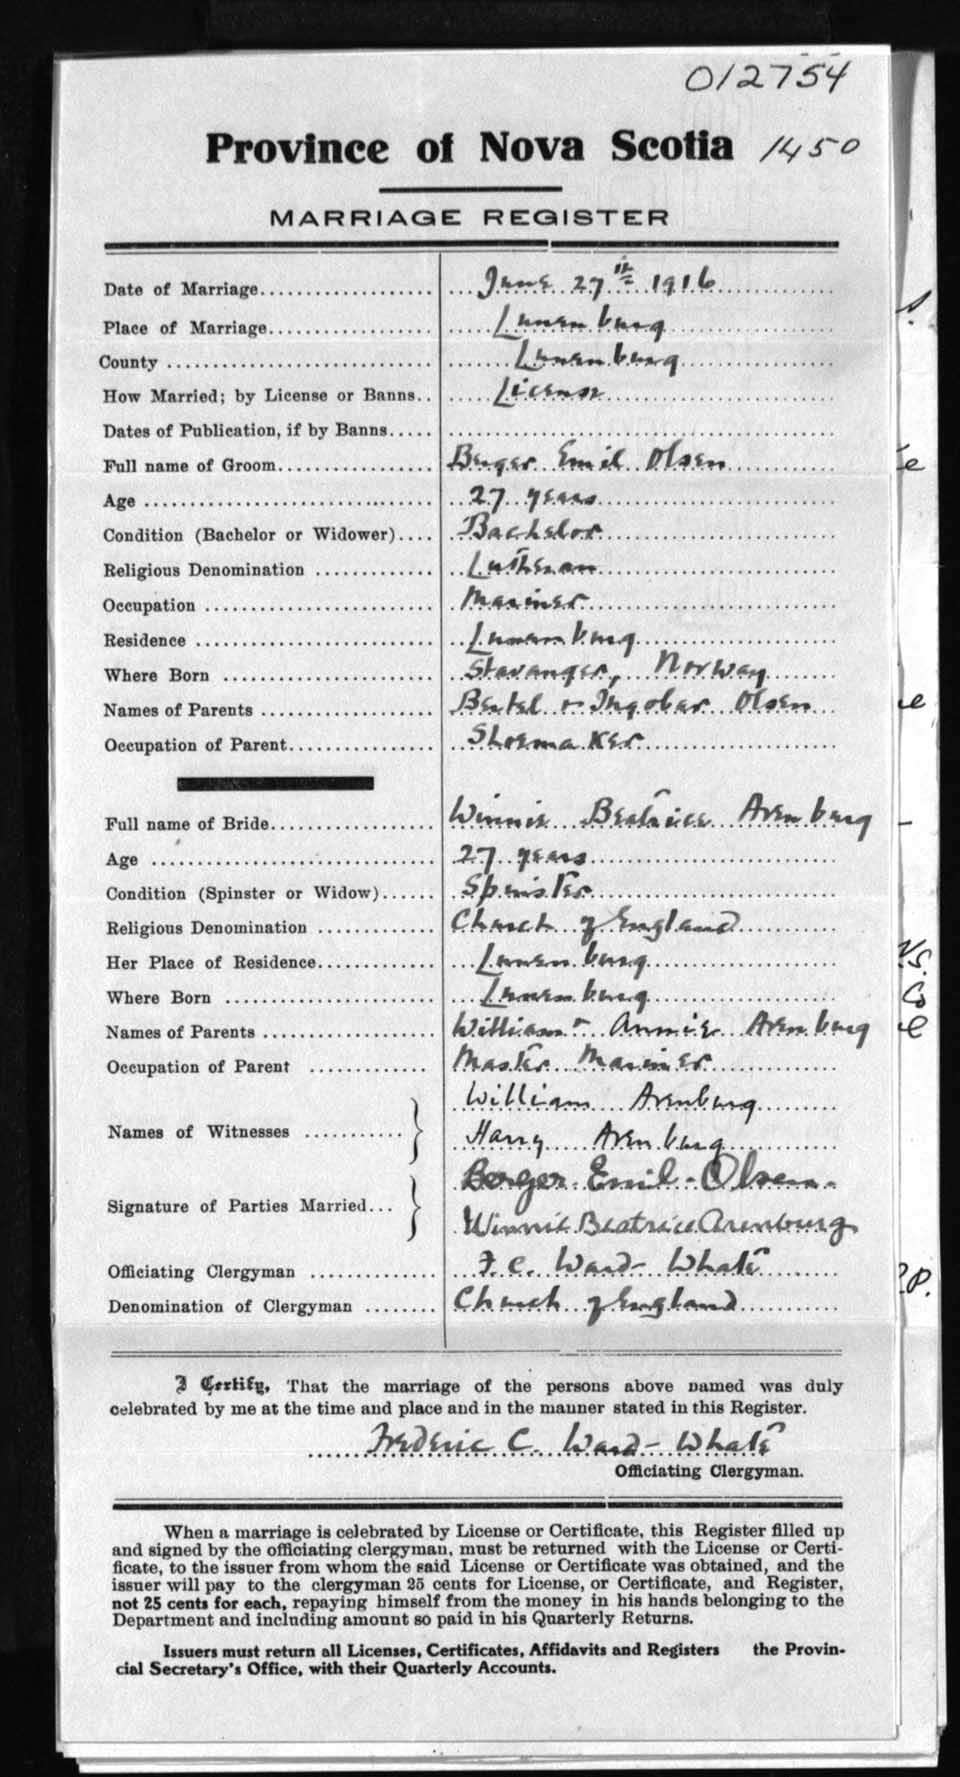 012754
Province of Nova Scotia 1450
MARRIAGE REGISTER
Date of Marriage.................... June 27th 1916
Place of Marriage................... Lunenburg
County .............................. Lunenburg
How Married; by License or Banns.. License
Dates of Publication, if by Banns.....
Full name of Groom.................. Berger Emil Olsen
Age ................................. 27 years
Condition (Bachelor or Widower).... Bachelor
Religious Denomination .............. Lutheran
Occupation .......................... Mariner
Residence ........................... Lunenburg
Where Born ........................ Stavanger, Norway
Names of Parents .................... Bertel & Ingobar Olsen
Occupation of Parent................. Shoemaker
Full name of Bride................... Winnie Beatrice Arenburg
Age ................................. 27 years
Condition (Spinster or Widow)...... Spinster
Religious Denomination ............. Church of England
Her Place of Residence............. Lunenburg
Where Born ........................ Lunenburg
Names of Parents .................... William & Annie Arenburg
Occupation of Parent .............. Master Mariner
William Arenburg
Names of Witnesses ........... } Harry Arenburg
Berger Emil Olsen
Signature of Parties Married... } Winnie Beatrice Arenburg
Officiating Clergyman ............... F. C. Ward-Whate
Denomination of Clergyman ........ Church of England
I Certify, That the marriage of the persons above named was duly
celebrated by me at the time and place and in the manner stated in this Register.
Frederic C. Ward-Whate
Officiating Clergyman.
When a marriage is celebrated by License or Certificate, this Register filled up
and signed by the officiating clergyman, must be returned with the License or Certi-
ficate, to the issuer from whom the said License or Certificate was obtained, and the
issuer will pay to the clergyman 25 cents for License, or Certificate, and Register,
not 25 cents for each, repaying himself from the money in his hands belonging to the
Department and including amount so paid in his Quarterly Returns.
Issuers must return all Licenses, Certificates, Affidavits and Registers the Provin-
cial Secretary's Office, with their Quarterly Accounts.